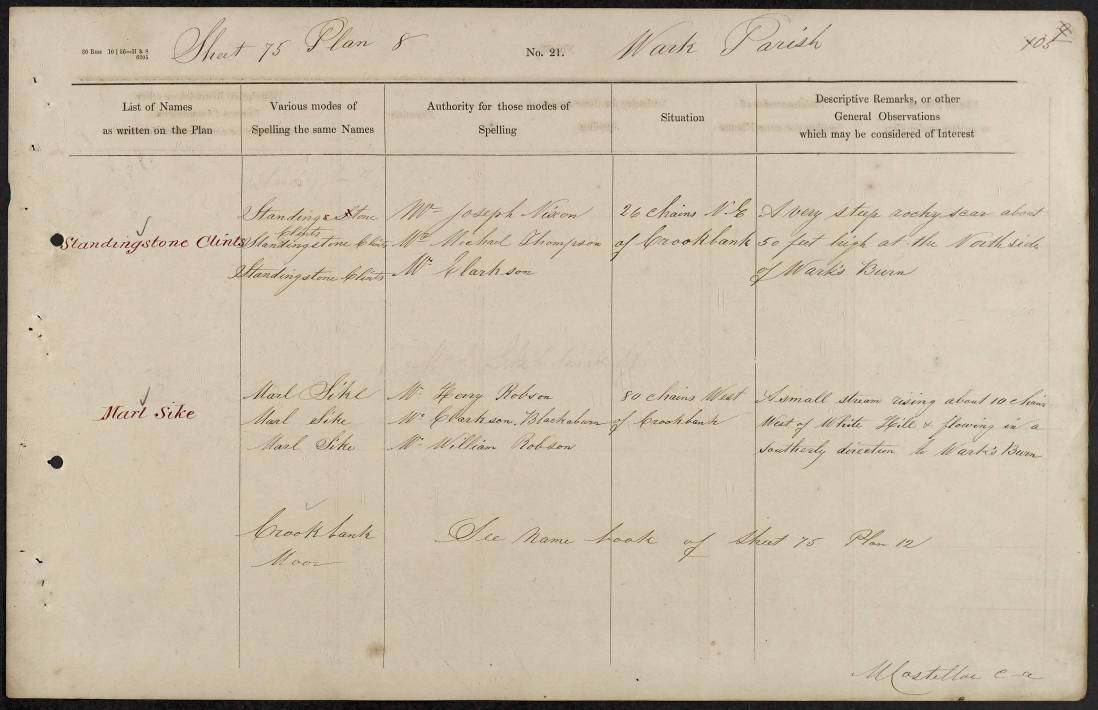 80 Bms 10 | 56—H & S
6205
Sheet 75 Plan 8
No. 21.
Wark Parish
105
List of Names
as written on the Plan
Various modes of
Spelling the same Names
Authority for those modes of
Spelling
Situation
Descriptive Remarks, or other
General Observations
which may be considered of Interest
Standingstone Clints
Standing Stone
Clints
Standingstone Clints
Standingstone Clints
Mr. Joseph Nixon
Mr. Michael Thompson
Mr. Clarkson
26 chains N.E
of Crookbank
A very steep rocky scar about
50 feet high at the North side
of Wark's Burn
Marl Sike
Marl Sike
Marl Sike
Marl Sike
Mr. Henry Robson
Mr. Clarkson, Blackaburn
Mr. William Robson
80 chains West
of Crookbank
A small stream rising about 10 chains
West of White Hill & flowing in a
Southerly direction to Wark's Burn
Crookbank
Moor
See Name book of Sheet 75 Plan 12
M Costelloe c-a